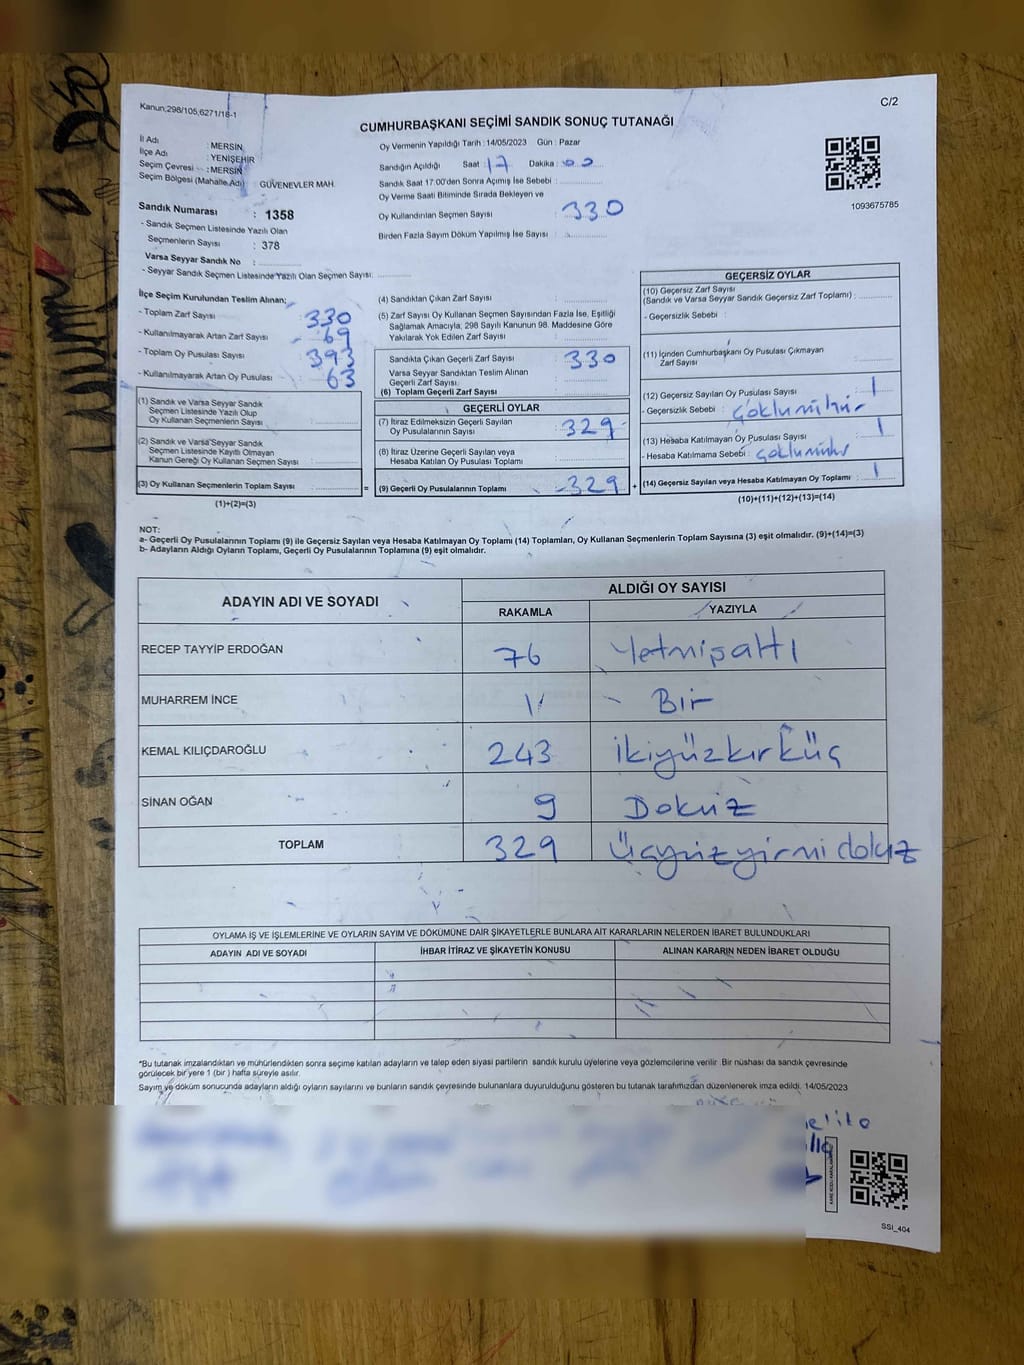 C/2
Kanun;298/105,6271/18-1
CUMHURBAŞKANI SEÇİMİ SANDIK SONUÇ TUTANAĞI
İl Adı : MERSİN
İlçe Adı : YENİŞEHİR
Seçim Çevresi : MERSİN
Seçim Bölgesi (Mahalle Adı) : GÜVENEVLER MAH.
Sandık Numarası : 1358
- Sandık Seçmen Listesinde Yazılı Olan
Seçmenlerin Sayısı : 378
Varsa Seyyar Sandık No :
- Seyyar Sandık Seçmen Listesinde Yazılı Olan Seçmen Sayısı:
Oy Vermenin Yapıldığı Tarih : 14/05/2023 Gün : Pazar
Sandığın Açıldığı Saat : 17 Dakika : 00
Sandık Saat 17:00'den Sonra Açımış İse Sebebi :
Oy Verme Saati Bitiminde Sırada Bekleyen ve
Oy Kullandırılan Seçmen Sayısı : 330
Birden Fazla Sayım Döküm Yapılmış İse Sayısı :
1093675785
İlçe Seçim Kurulundan Teslim Alınan;
- Toplam Zarf Sayısı : 330
- Kullanılmayarak Artan Zarf Sayısı : 69
- Toplam Oy Pusulası Sayısı : 393
- Kullanılmayarak Artan Oy Pusulası : 63
(1) Sandık ve Varsa Seyyar Sandık
Seçmen Listesinde Yazılı Olup
Oy Kullanan Seçmenlerin Sayısı :
(2) Sandık ve Varsa Seyyar Sandık
Seçmen Listesinde Kayıtlı Olmayan
Kanun Gereği Oy Kullanan Seçmen Sayısı :
(3) Oy Kullanan Seçmenlerin Toplam Sayısı :
(1)+(2)=(3)
=
(4) Sandıktan Çıkan Zarf Sayısı :
(5) Zarf Sayısı Oy Kullanan Seçmen Sayısından Fazla İse, Eşitliği
Sağlamak Amacıyla; 298 Sayılı Kanunun 98. Maddesine Göre
Yakılarak Yok Edilen Zarf Sayısı :
Sandıkta Çıkan Geçerli Zarf Sayısı : 330
Varsa Seyyar Sandıktan Teslim Alınan
Geçerli Zarf Sayısı.
(6) Toplam Geçerli Zarf Sayısı :
GEÇERLİ OYLAR
(7) İtiraz Edilmeksizin Geçerli Sayılan
Oy Pusulalarının Sayısı : 329
(8) İtiraz Üzerine Geçerli Sayılan veya
Hesaba Katılan Oy Pusulası Toplamı :
(9) Geçerli Oy Pusulalarının Toplamı 329
+
GEÇERSİZ OYLAR
(10) Geçersiz Zarf Sayısı
(Sandık ve Varsa Seyyar Sandık Geçersiz Zarf Toplamı) :
- Geçersizlik Sebebi :
(11) İçinden Cumhurbaşkanı Oy Pusulası Çıkmayan
Zarf Sayısı :
(12) Geçersiz Sayılan Oy Pusulası Sayısı : 1
- Geçersizlik Sebebi :
(13) Hesaba Katılmayan Oy Pusulası Sayısı : 1
- Hesaba Katılmama Sebebi :
(14) Geçersiz Sayılan veya Hesaba Katılmayan Oy Toplamı : 1
(10)+(11)+(12)+(13)=(14)
NOT:
a- Geçerli Oy Pusulalarının Toplamı (9) ile Geçersiz Sayılan veya Hesaba Katılmayan Oy Toplamı (14) Toplamları, Oy Kullanan Seçmenlerin Toplam Sayısına (3) eşit olmalıdır. (9)+(14)=(3)
b- Adayların Aldığı Oyların Toplamı, Geçerli Oy Pusulalarının Toplamına (9) eşit olmalıdır.
ADAYIN ADI VE SOYADI
ALDIĞI OY SAYISI
RAKAMLA YAZIYLA
RECEP TAYYİP ERDOĞAN 76 Yetmişaltı
MUHARREM İNCE 1 Bir
KEMAL KILIÇDAROĞLU 243 İkiyüzkırküç
SİNAN OĞAN 9 Dokuz
TOPLAM 329 Üçyüzyirmidokuz
OYLAMA İŞ VE İŞLEMLERİNE VE OYLARIN SAYIM VE DÖKÜMÜNE DAİR ŞİKAYETLERLE BUNLARA AİT KARARLARIN NELERDEN İBARET BULUNDUKLARI
ADAYIN ADI VE SOYADI İHBAR İTİRAZ VE ŞİKAYETİN KONUSU ALINAN KARARIN NEDEN İBARET OLDUĞU
*Bu tutanak imzalandıktan ve mühürlendikten sonra seçime katılan adayların ve talep eden siyasi partilerin sandık kurulu üyelerine veya gözlemcilerine verilir. Bir nüshası da sandık çevresinde
görülecek bir yere 1 (bir ) hafta süreyle asılır.
Sayım ve döküm sonucunda adayların aldığı oyların sayılarını ve bunların sandık çevresinde bulunanlara duyurulduğunu gösteren bu tutanak tarafımızdan düzenlenerek imza edildi. 14/05/2023
SSI_404